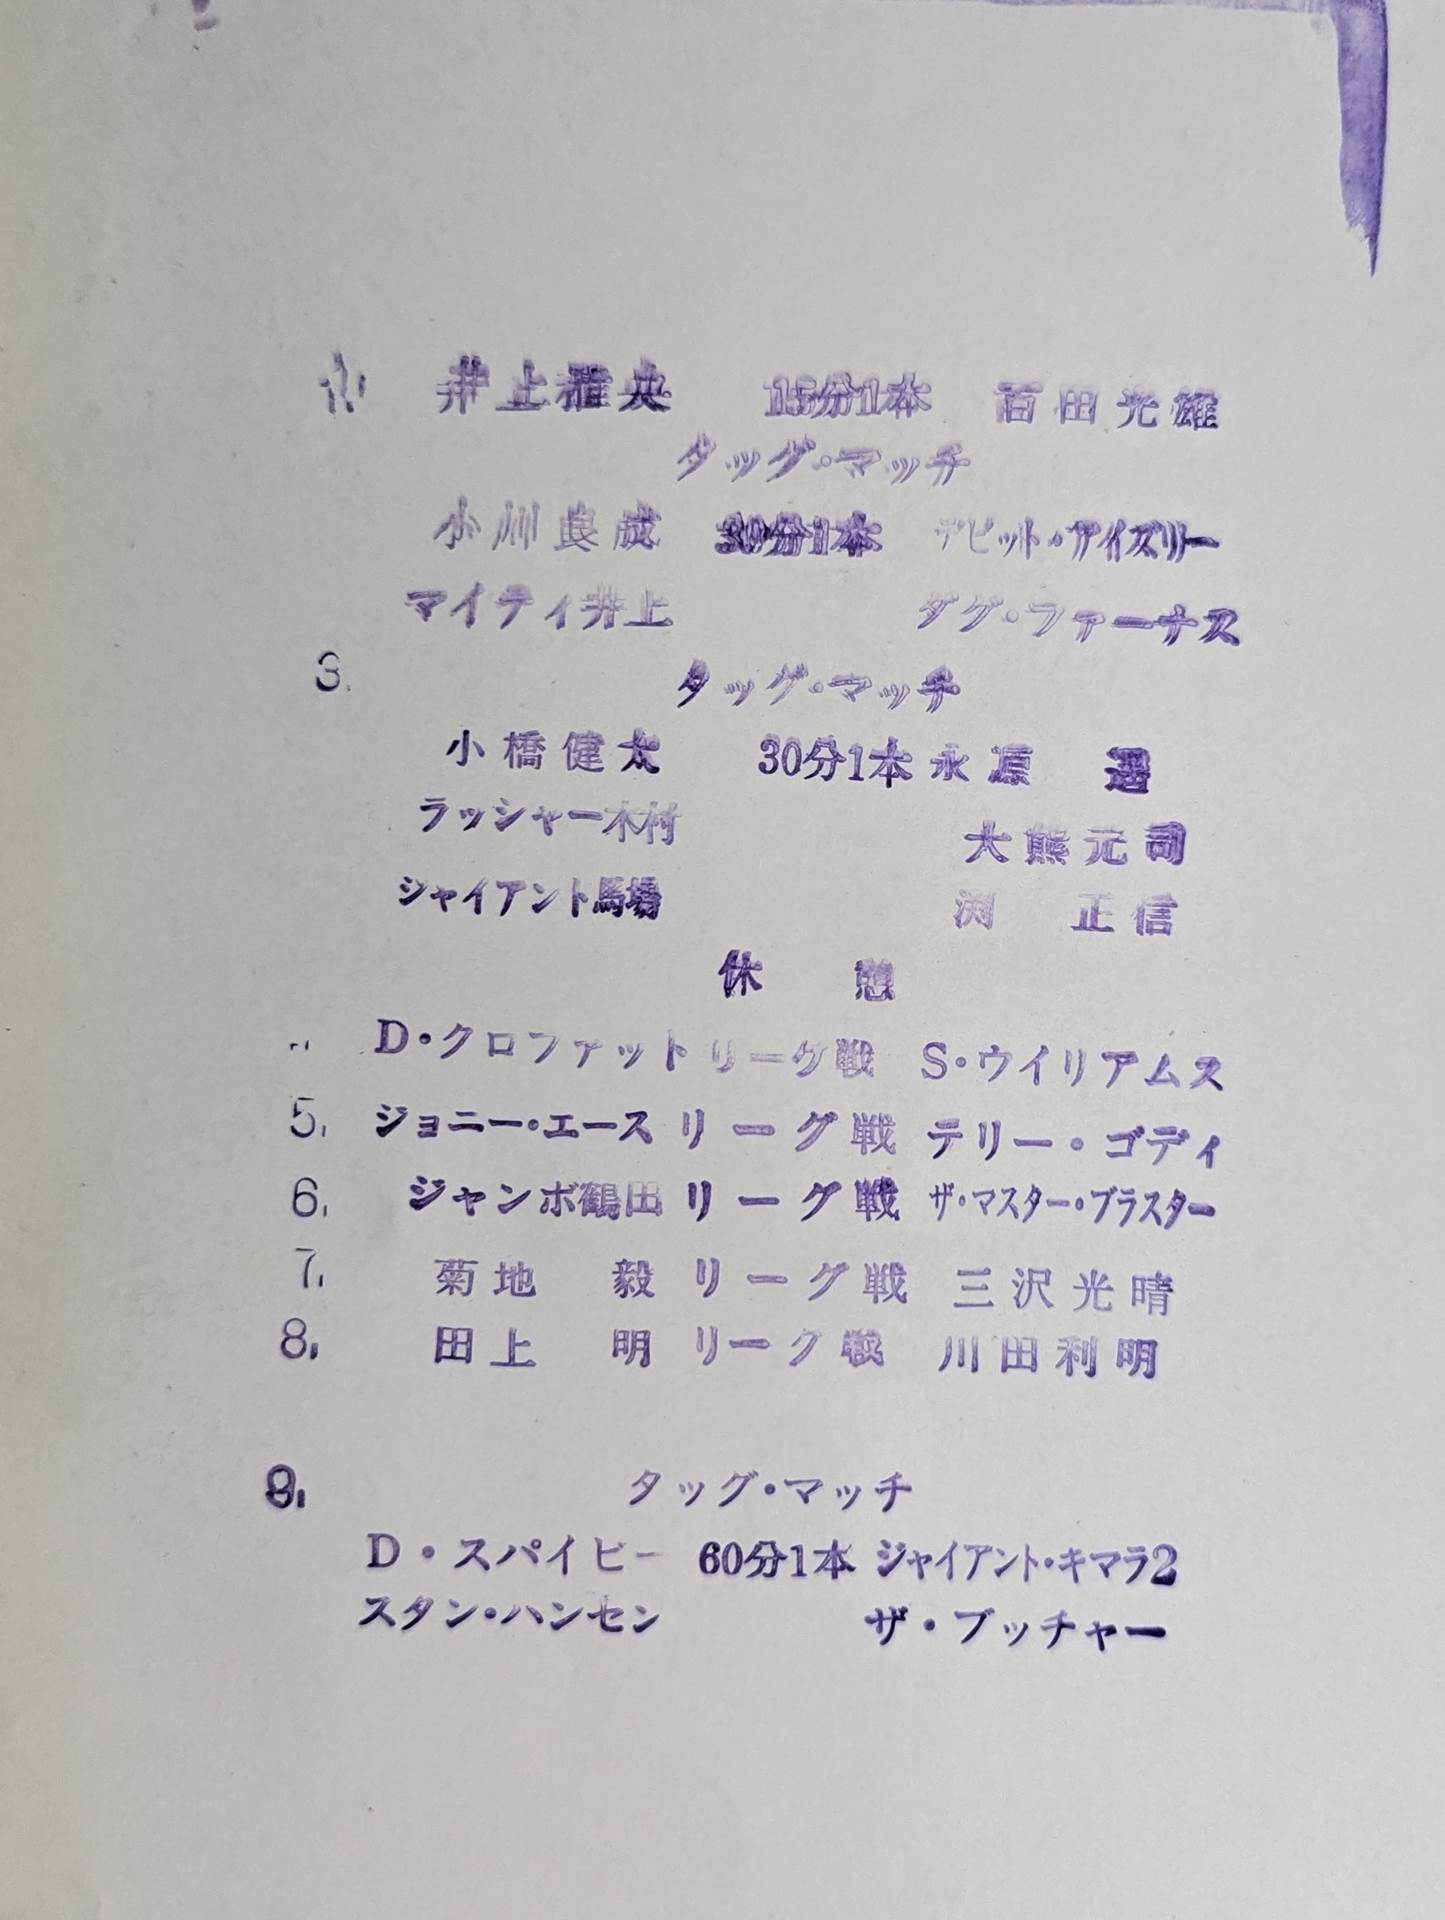 井上雅央 15分1本 百田光雄
タッグ・マッチ
小川良成 30分1本 デビット・アイズリー
マイティ井上 ダグ・ファーナス
3. タッグ・マッチ
小橋健太 30分1本 永源 遥
ラッシャー木村 大熊元司
ジャイアント馬場 渕 正信
休 憩
D・クロファット リーグ戦 S・ウイリアムス
5. ジョニー・エース リーグ戦 テリー・ゴディ
6. ジャンボ鶴田 リーグ戦 ザ・マスター・ブラスター
7. 菊地 毅 リーグ戦 三沢光晴
8. 田上 明 リーグ戦 川田利明
9. タッグ・マッチ
D・スパイビー 60分1本 ジャイアント・キマラ2
スタン・ハンセン ザ・ブッチャー